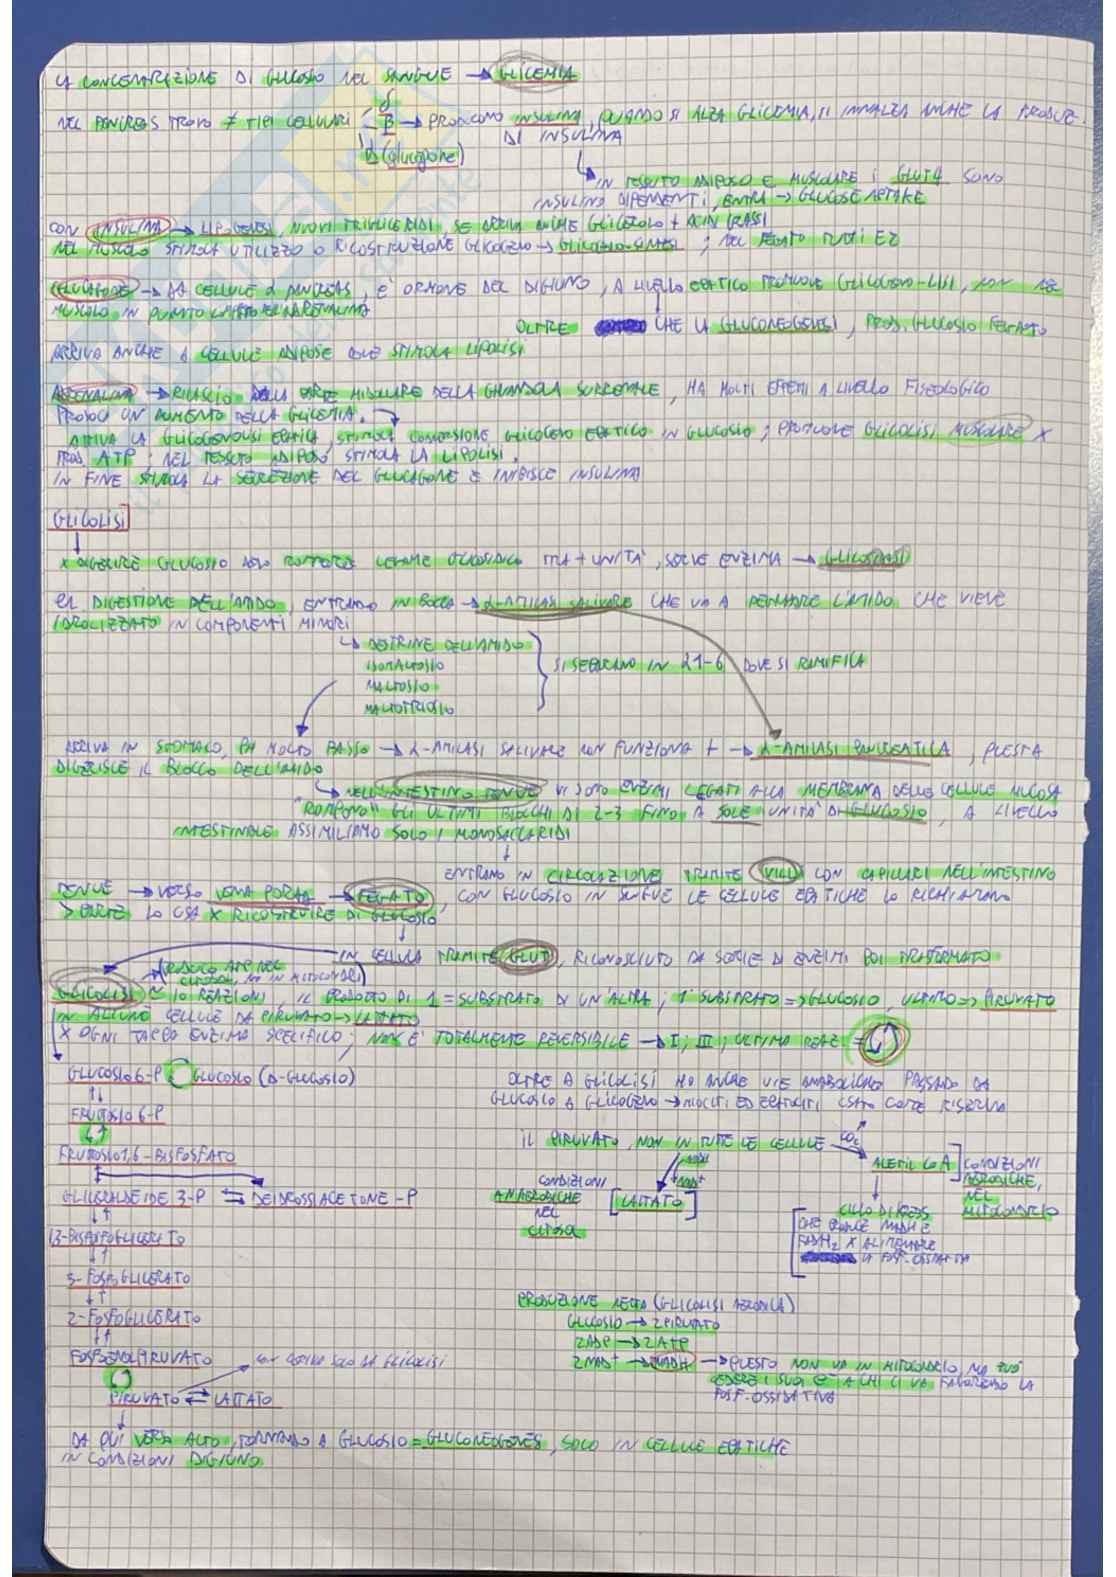 LA CONCENTRAZIONE DI GLUCOSIO NEL SANGUE → GLICEMIA
δ
NEL PANCREAS TROVO ≠ TIPI CELLULARI - β → PRODUCONO INSULINA, QUANDO SI ALZA GLICEMIA, SI INNALZA ANCHE LA PRODUZ.
DI INSULINA
(glucagone)
IN TESSUTO ADIPOSO E MUSCOLARE I GLUT4 SONO
INSULINO DIPENDENTI, ENTRA → GLUCOSE UPTAKE
CON INSULINA → LIPOGENESI, NUOVI TRIGLICERIDI, SE ARRIVA ANCHE GLICEROLO + ACIDI GRASSI
NEL MUSCOLO STIMOLA UTILIZZO O RICOSTRUZIONE GLICOGENO → GLICOGENO-SINTESI ; NEL FEGATO TUTTI E 2
GLUCAGONE → DA CELLULE α PANCREAS, E' ORMONE DEL DIGIUNO, A LIVELLO EPATICO PROMUOVE GLICOGENO-LISI, NON NEL
MUSCOLO IN QUANTO
OLTRE CHE LA GLUCONEOGENESI, PROD. GLUCOSIO FEGATO
ARRIVA ANCHE A CELLULE ADIPOSE DOVE STIMOLA LIPOLISI
ADRENALINA → RILASCIO DALLA PARTE MIDOLLARE DELLA GHIANDOLA SURRENALE, HA MOLTI EFFETTI A LIVELLO FISIOLOGICO
PRODUCE UN AUMENTO DELLA GLICEMIA.
ATTIVA LA GLICOGENOLISI EPATICA, STIMOLA CONVERSIONE GLICOGENO EPATICO IN GLUCOSIO ; PROMUOVE GLICOLISI MUSCOLARE X
PROD. ATP ; NEL TESSUTO ADIPOSO STIMOLA LA LIPOLISI.
IN FINE STIMOLA LA SECREZIONE DEL GLUCAGONE E INIBISCE INSULINA
GLICOLISI
X DIGERIRE GLUCOSIO DEVO ROMPERE LEGAME GLICOSIDICO TRA + UNITA', SERVE ENZIMA → GLICOSIDASI
ES. DIGESTIONE DELL'AMIDO, ENTRANDO IN BOCCA → α-AMILASI SALIVARE CHE VA A L'AMIDO CHE VIENE
IDROLIZZATO IN COMPONENTI MINORI
↳ DESTRINE DELL'AMIDO
ISOMALTOSIO
MALTOSIO
MALTOTRIOSIO
SI SEPARANO IN α1-6 DOVE SI RAMIFICA
ARRIVA IN STOMACO, PH MOLTO BASSO → α-AMILASI SALIVARE NON FUNZIONA + → α-AMILASI PANCREATICA, QUESTA
DIGERISCE IL BLOCCO DELL'AMIDO
↳ NELL'INTESTINO TENUE VI SONO ENZIMI LEGATI ALLA MEMBRANA DELLE CELLULE MUCOSA
"ROMPONO" GLI ULTIMI BLOCCHI DI 2-3 FINO A SOLE UNITA' DI GLUCOSIO, A LIVELLO
INTESTINALE ASSIMILIAMO SOLO I MONOSACCARIDI
↓
ENTRANO IN CIRCOLAZIONE TRAMITE VILLI CON CAPILLARI NELL'INTESTINO
TENUE → VERSO VENA PORTA → FEGATO, CON GLUCOSIO IN SANGUE LE CELLULE EPATICHE LO RICHIAMANO
LO USA X RICOSTRUIRE DI GLUCOSIO
IN CELLULA TRAMITE GLUT, RICONOSCIUTO DA SERIE DI ENZIMI POI TRASFORMATO
(PRODUCO ATP NEL
CITOSOL, NO IN MITOCONDRI)
GLICOLISI ≃ 10 REAZIONI, IL PRODOTTO DI 1 = SUBSTRATO DI UN'ALTRA ; 1° SUBSTRATO => GLUCOSIO, ULTIMO => PIRUVATO
IN ALCUNE CELLULE DA PIRUVATO → LATTATO
X OGNI TAPPA ENZIMA SPECIFICO ; NON E' TOTALMENTE REVERSIBILE → I ; III ; ULTIMA REAZ. =
GLUCOSIO 6-P GLUCOSIO (D-GLUCOSIO)
↑↓
FRUTTOSIO 6-P
↓↑
FRUTTOSIO 1,6-BISFOSFATO
GLICERALDEIDE 3-P ⇆ DEIDROSSIACETONE-P
↓↑
1,3-BISFOSFOGLICERATO
↓↑
3-FOSFOGLICERATO
↓↑
2-FOSFOGLICERATO
↓↑
FOSFOENOLPIRUVATO
NON DERIVA SOLO DA GLICOLISI
PIRUVATO ⇄ LATTATO
↓
DA QUI VERSO ALTO, TORNANDO A GLUCOSIO = GLUCONEOGENESI, SOLO IN CELLULE EPATICHE
IN CONDIZIONI DIGIUNO
OLTRE A GLICOLISI HO ANCHE VIE ANABOLICHE PASSANDO DA
GLUCOSIO A GLICOGENO → MIOCITI ED EPATOCITI COME RISERVA
IL PIRUVATO, NON IN TUTTE LE CELLULE → CO2
ACETIL CoA
CONDIZIONI
AEROBICHE,
NEL
MITOCONDRIO
NADH
NAD+
CONDIZIONI
ANAEROBICHE
NEL
CITOSOL
[LATTATO]
CICLO DI KREBS
CHE PRODUCE NADH E
FADH2 X ALIMENTARE
LA FOSF. OSSIDATIVA
PRODUZIONE NETTA (GLICOLISI AEROBICA)
GLUCOSIO → 2 PIRUVATO
2ADP → 2ATP
2NAD+ → 2NADH → QUESTO NON VA IN MITOCONDRIO, MA PUO'
CEDERE I SUOI e- A CHI CI VA FAVORENDO LA
FOSF. OSSIDATIVA